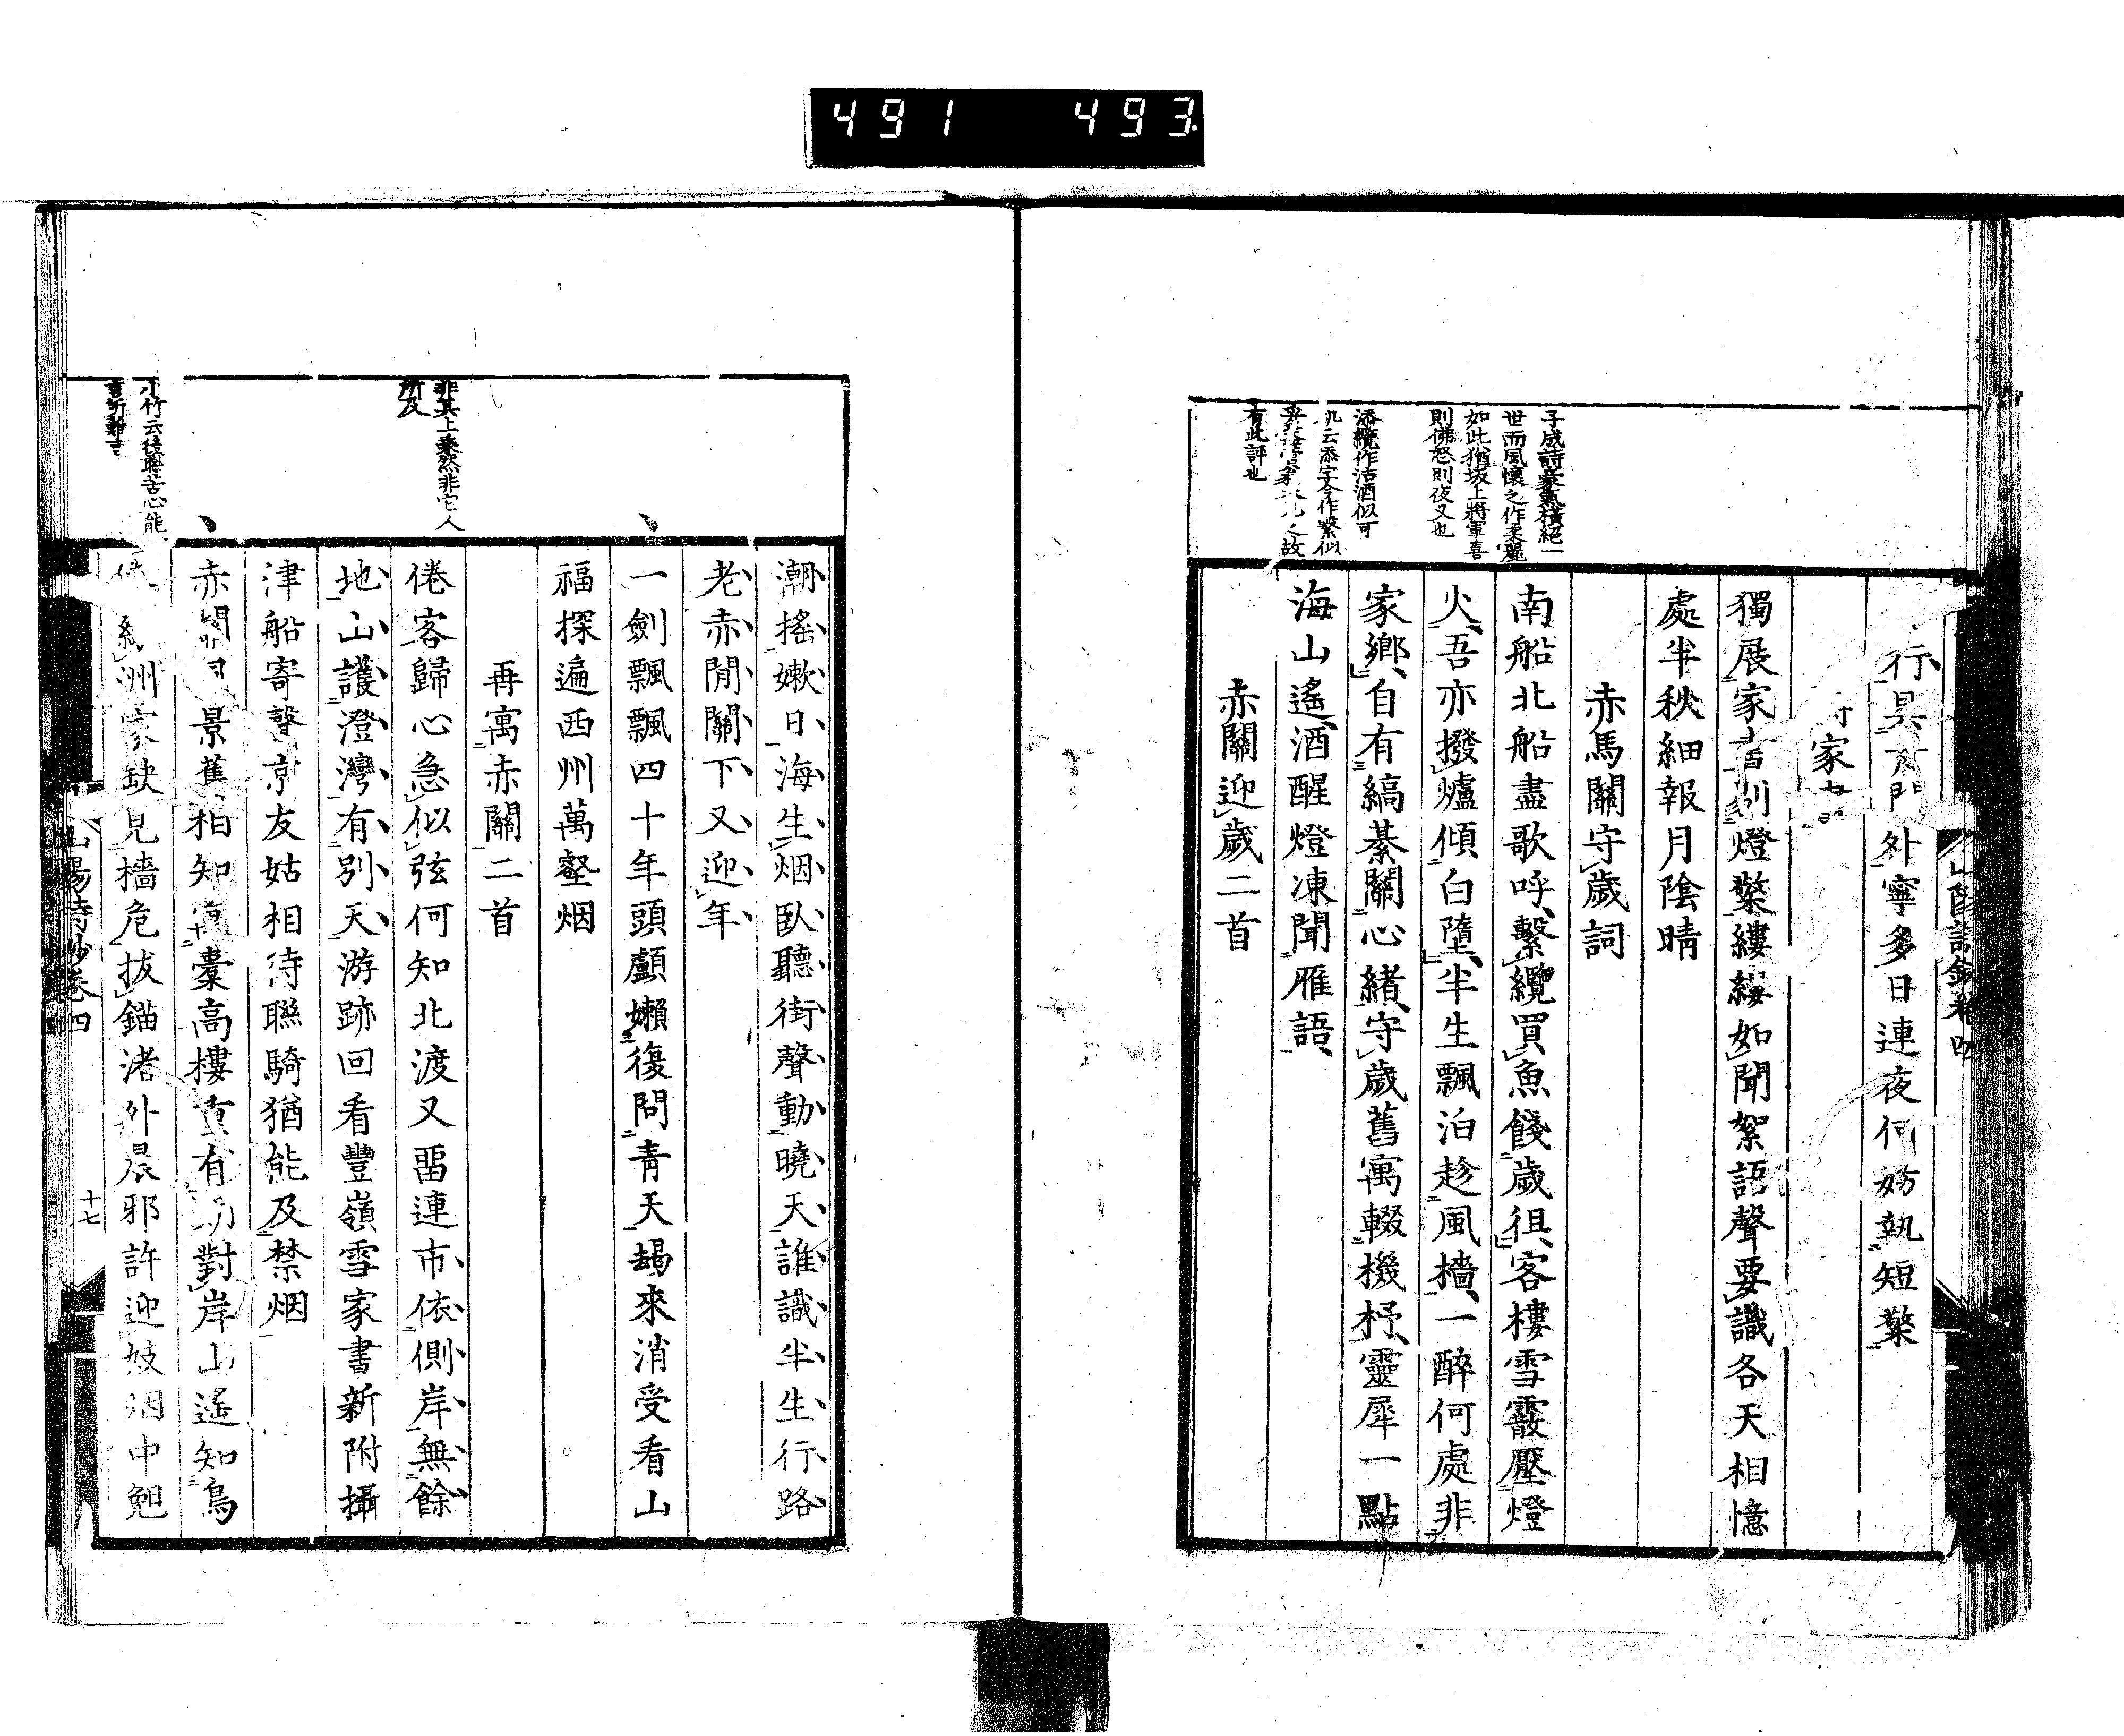 491 493
子成詩豪氣橫絕一
世而風懷之作柔麗
如此猶坂上將軍喜
則佛怒則夜叉也
添纜作沽酒似可
云添字今作繫似
故
有此評也
行具 門外寧多日連夜何妨執短檠
家書
獨展家書剔燈檠縷縷如聞絮語聲要識各天相憶
處半秋細報月陰晴
赤馬關守歲詞
南船北船盡歌呼繫纜買魚餞歲徂客樓雪霰壓燈
火吾亦撥爐傾白墮半生飄泊趁風檣一醉何處非
家鄉自有縞綦關心緒守歲舊寓輟機杼靈犀一點
海山遙酒醒燈凍聞雁語
赤關迎歲二首
潮搖嫩日海生烟臥聽街聲動曉天誰識半生行路
老赤間關下又迎年
一劍飄飄四十年頭顱懶復問青天朅來消受看山
福探遍西州萬壑烟
再寓赤關二首
非其上乘然非它人
所及
倦客歸心急似弦何知北渡又畱連市依側岸無餘
地山護澄灣有別天游跡回看豐嶺雪家書新附攝
津船寄聲京友姑相待聯騎猶能及禁烟
赤間 景舊相知 橐高樓 有 對岸山遙知鳥
小竹云後聯苦心能
言所難言
洲家缺見檣危拔錨渚外晨邪許迎妓烟中
山陽詩鈔卷四
十七